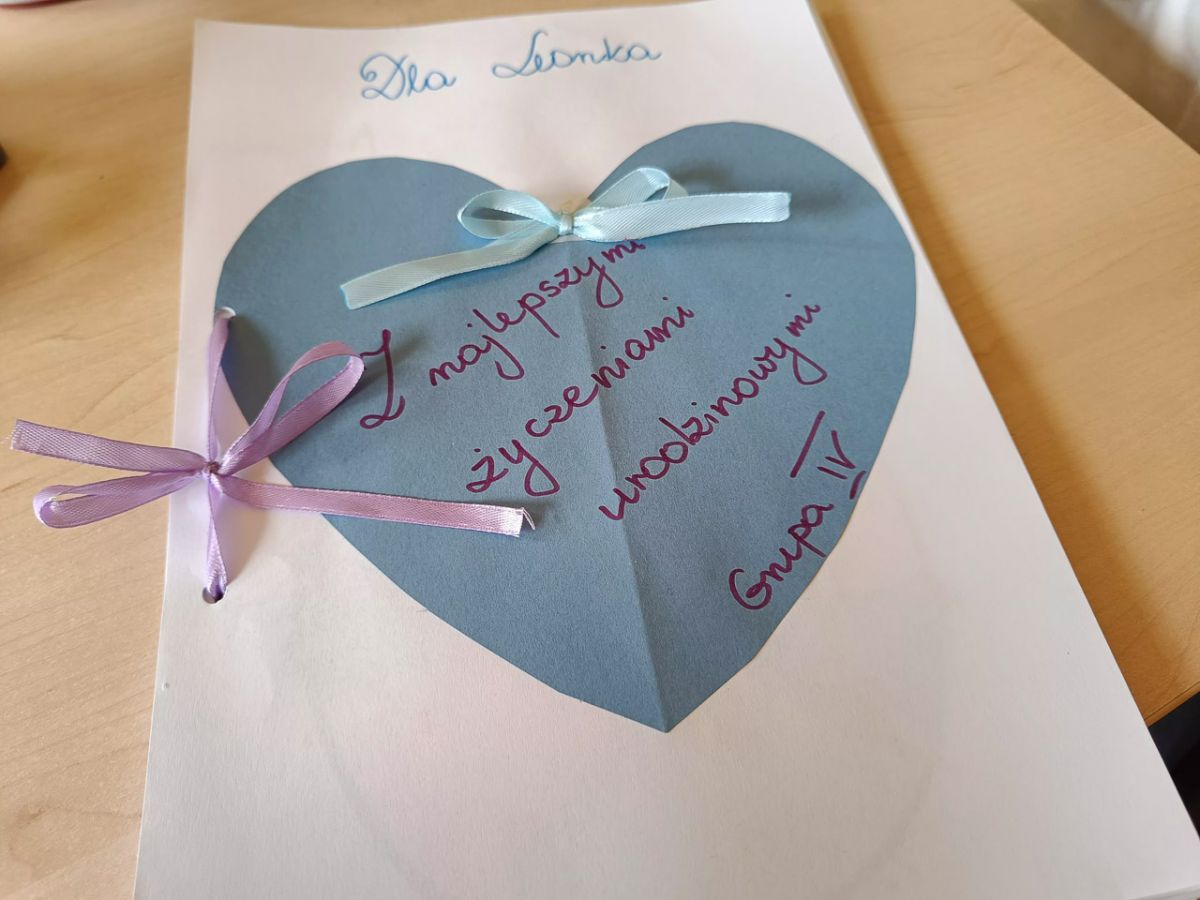 Dla Leonka
Z najlepszymi
życzeniami
urodzinowymi
Grupa IV